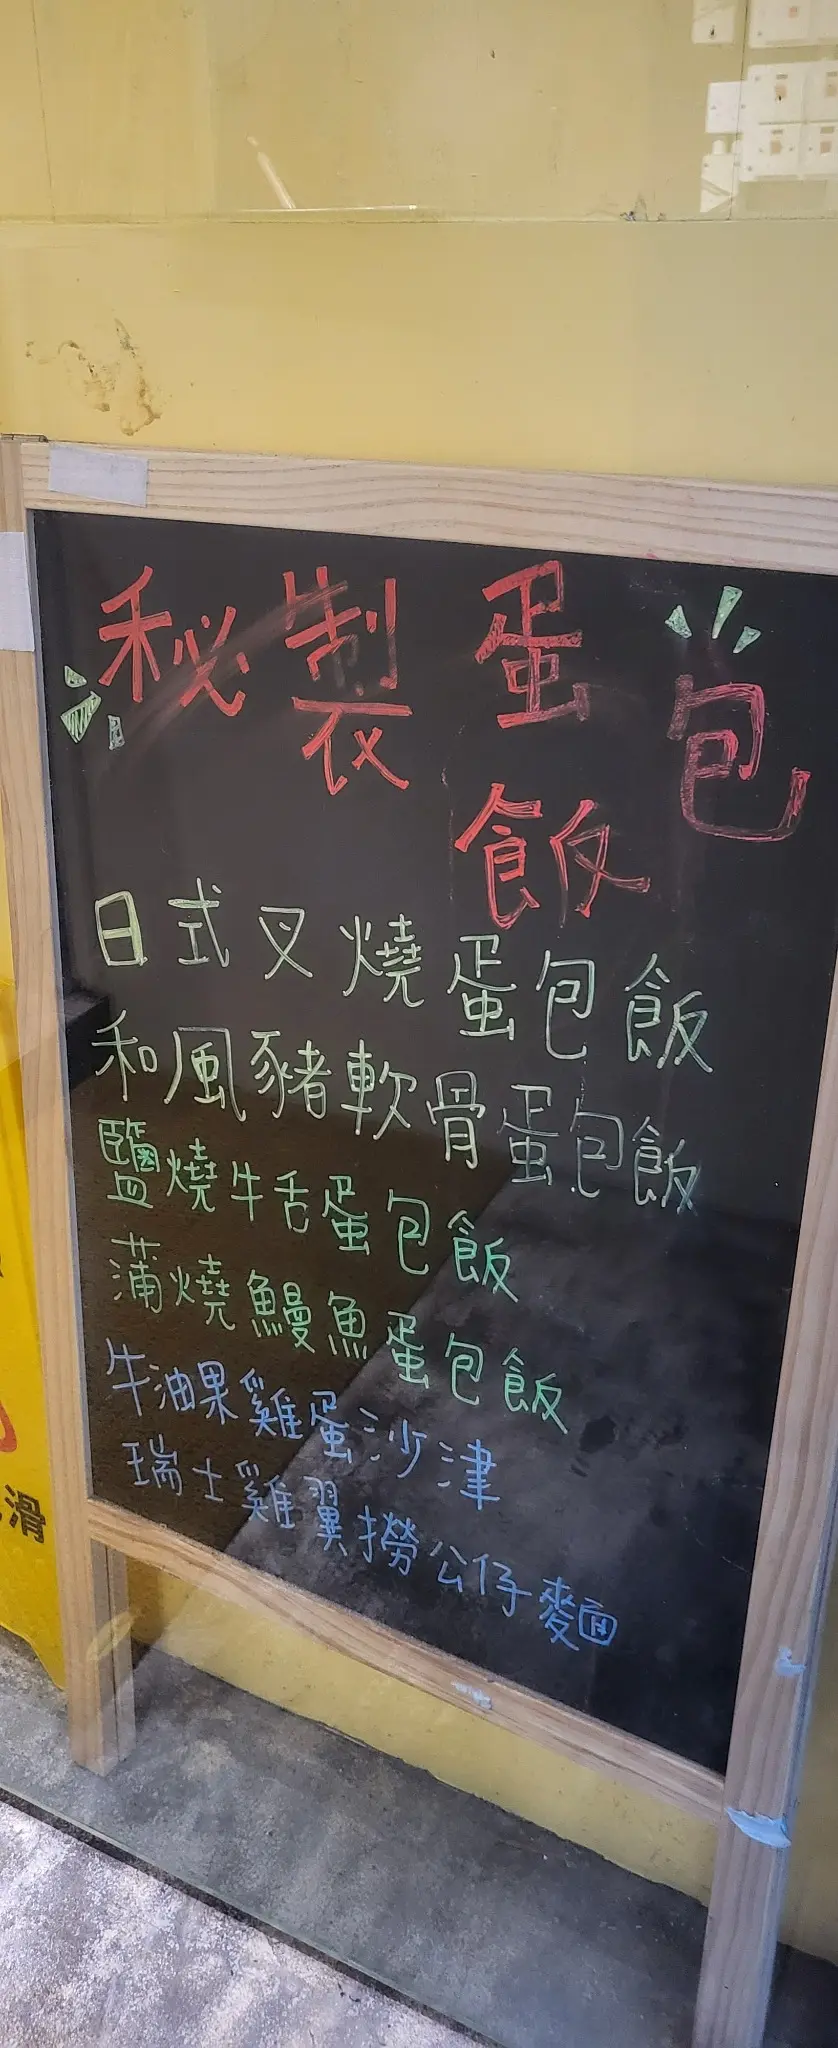 秘製蛋包
飯
日式叉燒蛋包飯
和風豬軟骨蛋包飯
鹽燒牛舌蛋包飯
蒲燒鰻魚蛋包飯
牛油果雞蛋沙津
瑞士雞翼撈公仔麵
滑